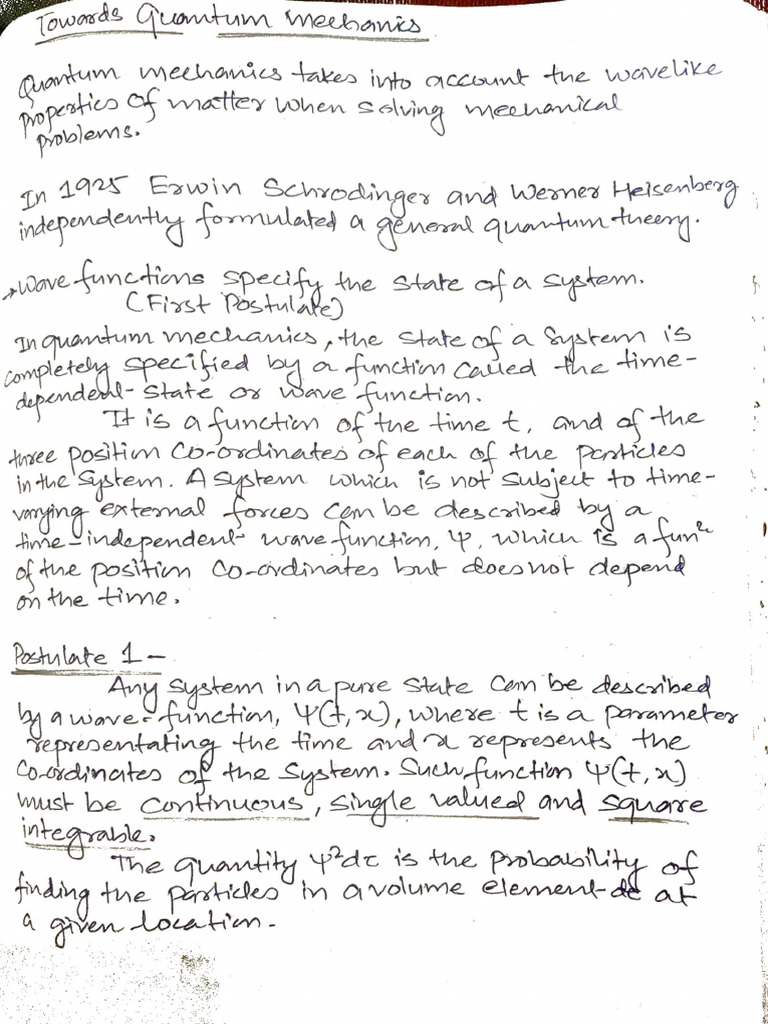 Towards Quantum mechanics
Quantum mechanics takes into account the wavelike
properties of matter when solving mechanical
problems.
In 1925 Erwin Schrodinger and Werner Heisenberg
independently formulated a general quantum theory.
→ Wave functions specify the state of a system.
(First Postulate)
In quantum mechanics, the state of a system is
completely specified by a function called the time-
dependent-state or wave function.
It is a function of the time t, and of the
three position co-ordinates of each of the particles
in the system. A system which is not subject to time-
varying external forces can be described by a
time-independent wave function, Ψ, which is a funⁿ
of the position co-ordinates but does not depend
on the time.
Postulate 1 -
Any system in a pure state can be described
by a wave-function, Ψ(t,x), where t is a parameter
representating the time and x represents the
co-ordinates of the system. Such function Ψ(t,x)
must be continuous, single valued and square
integrable.
The quantity Ψ²dτ is the probability of
finding the particles in a volume element dτ at
a given location.